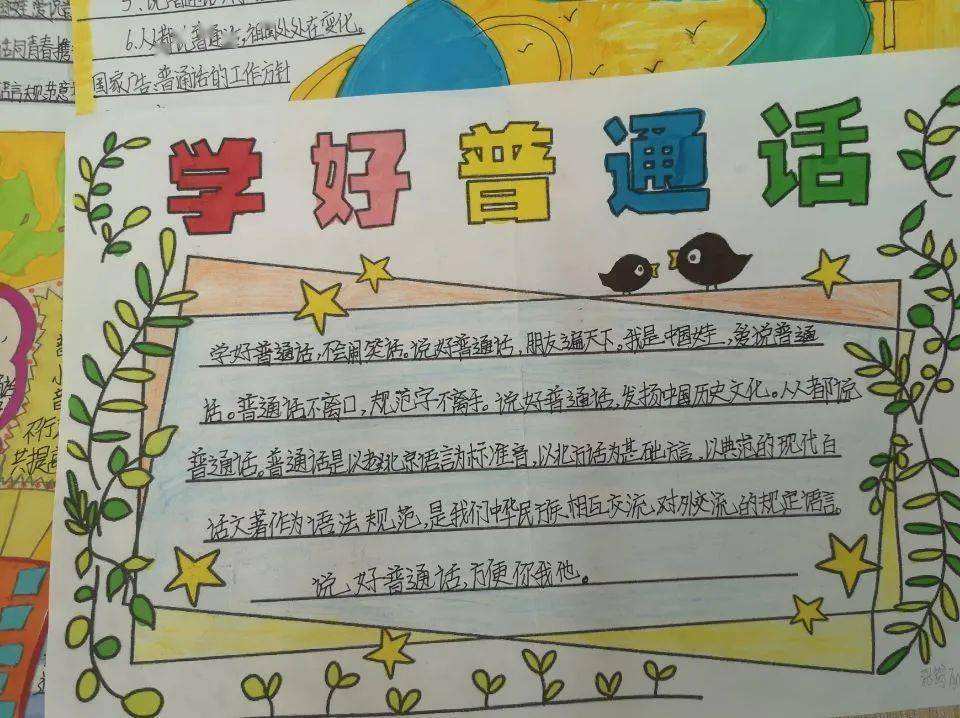 6.人人都说普通话,祖国处处在变化。
国家广告普通话的工作方针
学好普通话
学好普通话,不会闹笑话。说好普通话,朋友遍天下。我是中国娃,爱说普通
话。普通话不离口,规范字不离手。说好普通话,发扬中国历史文化。人人都说
普通话。普通话是以北京语言为标准音,以北方话为基础方言,以典范的现代白
话文著作为语法规范,是我们中华民族相互交流,对外交流的规定语言。
说好普通话,方便你我他。